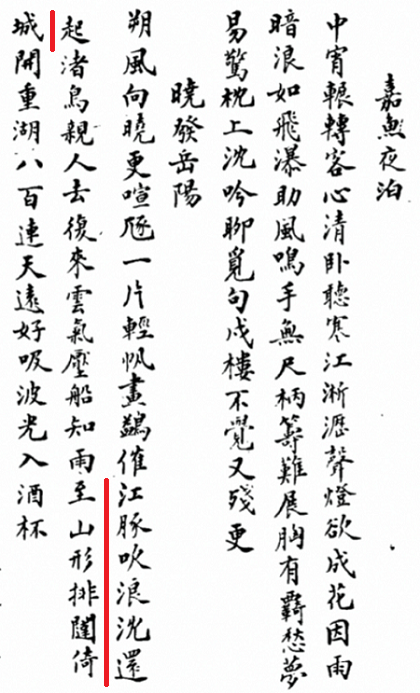 嘉魚夜泊
中宵輾轉客心清卧聽寒江淅瀝聲燈欲成花因雨
暗浪如飛瀑助風鳴手無尺柄籌難展胸有覊愁夢
易驚枕上沈吟聊覓句戍樓不覺又殘更
曉發岳陽
朔風向曉更喧豗一片輕帆畫鷁催江豚吹浪沈還
起渚鳥親人去復來雲氣壓船知雨至山形排闥倚
城開重湖八百連天遠好吸波光入酒杯